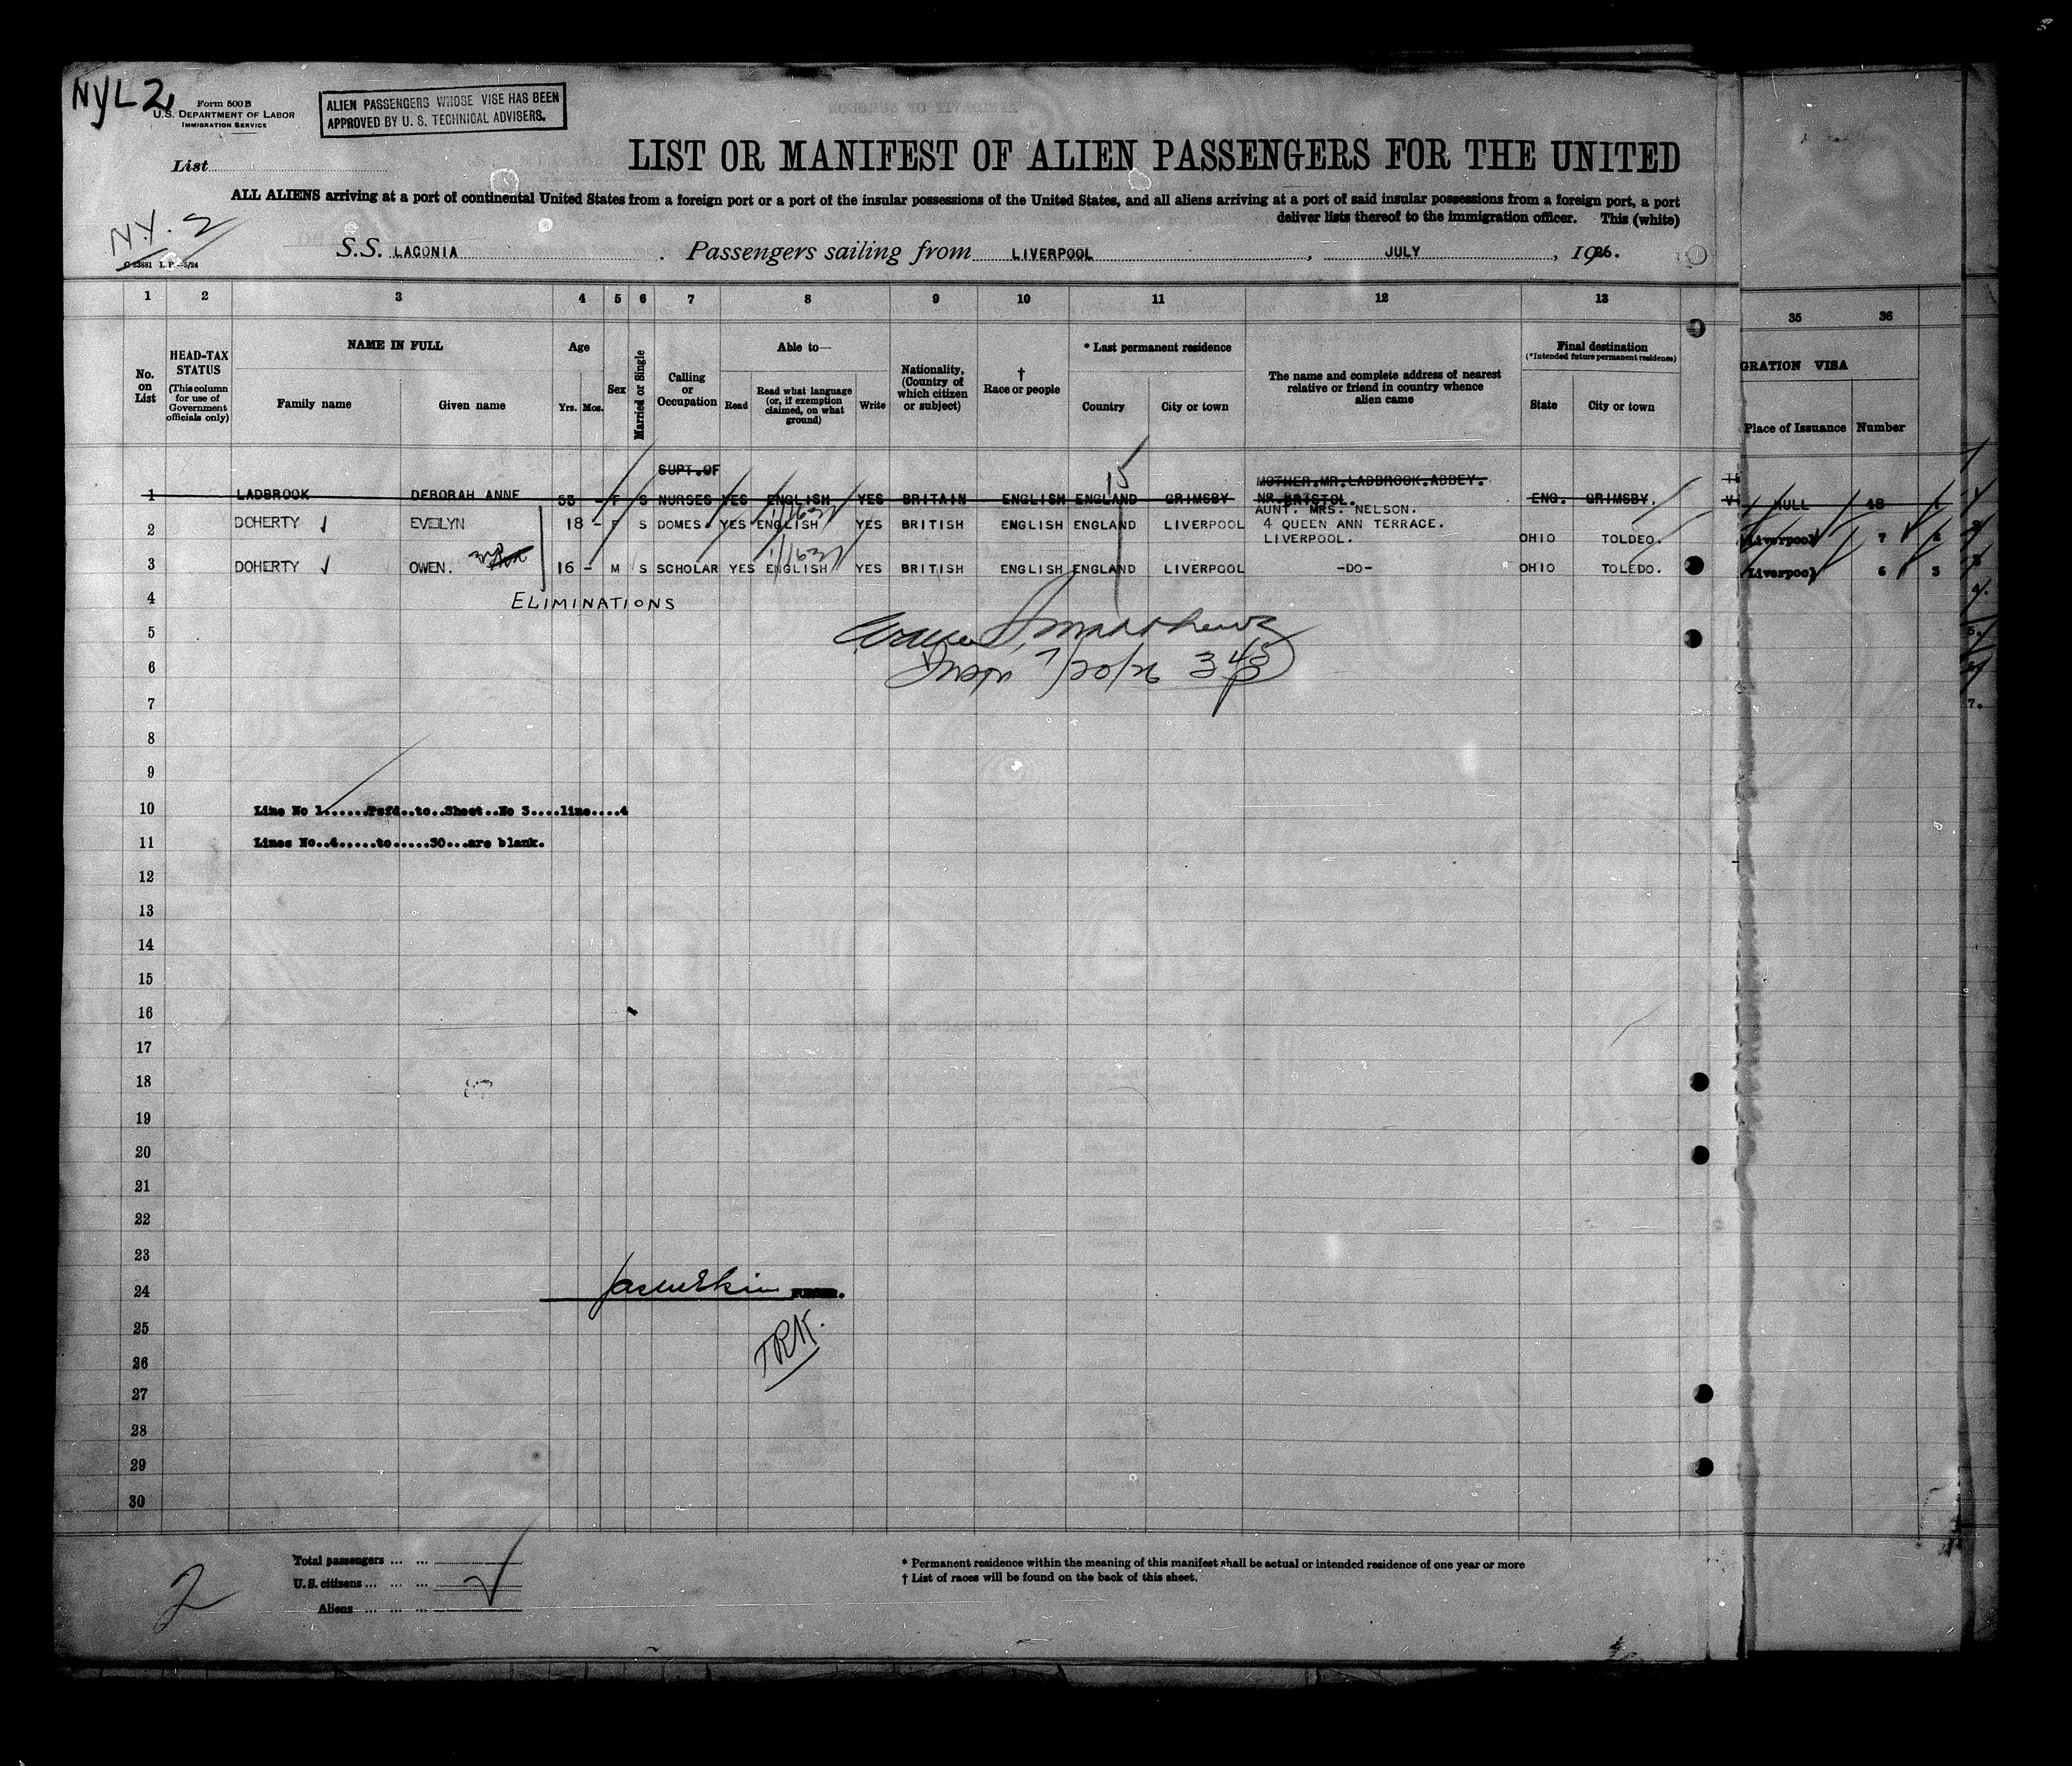 NYL 2,
Form 500 B
U.S. DEPARTMENT OF LABOR
IMMIGRATION SERVICE
ALIEN PASSENGERS WHOSE VISE HAS BEEN
APPROVED BY U. S. TECHNICAL ADVISERS.
List
LIST OR MANIFEST OF ALIEN PASSENGERS FOR THE UNITED
ALL ALIENS arriving at a port of continental United States from a foreign port or a port of the insular possessions of the United States, and all aliens arriving at a port of said insular possessions from a foreign port, a port
deliver lists thereof to the immigration officer. This (white)
N.Y. 2
S.S. LACONIA . Passengers sailing from LIVERPOOL , JULY , 1926.
1 2 3 4 5 6 7 8 9 10 11 12 13 35 36
No. on List
HEAD-TAX STATUS
(This column for use of Government officials only)
NAME IN FULL
Family name Given name
Age
Yrs. Mos.
Sex
Married or Single
Calling or Occupation
Able to—
Read
Read what language (or, if exemption claimed, on what ground)
Write
Nationality, (Country of which citizen or subject)
† Race or people
* Last permanent residence
Country City or town
The name and complete address of nearest relative or friend in country whence alien came
Final destination
(*Intended future permanent residence)
State City or town
GRATION VISA
Place of Issuance Number
SUPT.OF MOTHER.MR.LADBROOK.ABBEY.
1 LADBROOK DEBORAH ANNE 53 - F S NURSES YES ENGLISH YES BRITAIN ENGLISH ENGLAND GRIMSBY NR.BRISTOL. ENG. GRIMSBY. HULL 48
15
AUNT. MRS. NELSON.
2 DOHERTY EVELYN 18 - F S DOMES. YES ENGLISH YES BRITISH ENGLISH ENGLAND LIVERPOOL 4 QUEEN ANN TERRACE.
LIVERPOOL. OHIO TOLDEO. Liverpool 7
3 DOHERTY OWEN. 16 - M S SCHOLAR YES ENGLISH YES BRITISH ENGLISH ENGLAND LIVERPOOL -DO- OHIO TOLEDO. Liverpool 6 3
4 ELIMINATIONS
5 Matthews
6 Insp 7/20/26 3 45
7
8
9
10 Line No 1......Tsfd..to..Sheet..No 3....line....4
11 Lines No..4.....to......30...are blank.
12
13
14
15
16
17
18
19
20
21
22
23
24 PURSER.
25 TRK.
26
27
28
29
30
Total passengers ... ...
U.S. citizens ... ... ...
Aliens ... ... ...
2
* Permanent residence within the meaning of this manifest shall be actual or intended residence of one year or more
† List of races will be found on the back of this sheet.